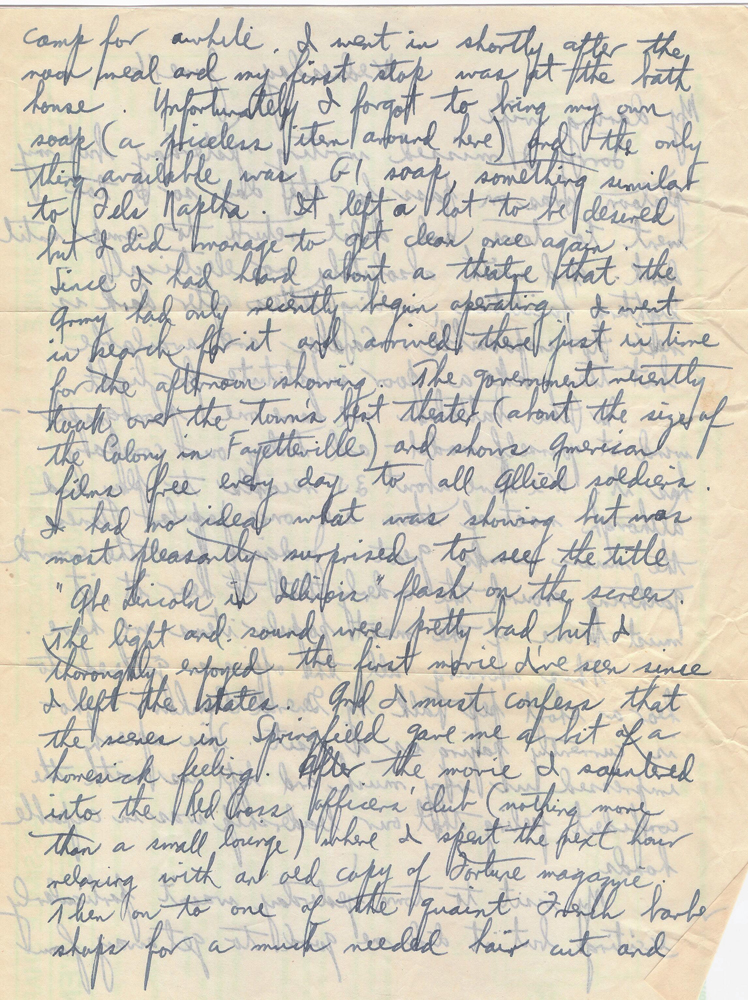 camp for awhile. I went in shortly after the
noon meal and my first stop was at the bath
house. Unfortunately I forgot to bring my own
soap (a priceless item around here) and the only
thing available was GI soap, something similar
to Fels Naptha. It left a lot to be desired
but I did manage to get clean once again.
Since I had heard about a theatre that the
Army had only recently begin operating, I went
in search for it and arrived there just in time
for the afternoon showing. The government recently
took over the town's best theater (about the size of
the Colony in Fayetteville) and shows American
films free every day to all Allied soldiers.
I had no idea what was showing but was
most pleasantly surprised to see the title
"Abe Lincoln in Illinois" flash on the screen.
The light and sound were pretty bad but I
thoroughly enjoyed the first movie I've seen since
I left the states. And I must confess that
the scenes in Springfield gave me a bit of a
homesick feeling. After the movie I sauntered
into the Red Cross officers' club (nothing more
than a small lounge) where I spent the next hour
relaxing with an old copy of Fortune magazine.
Then on to one of the quaint French barber
shops for a much needed hair cut and